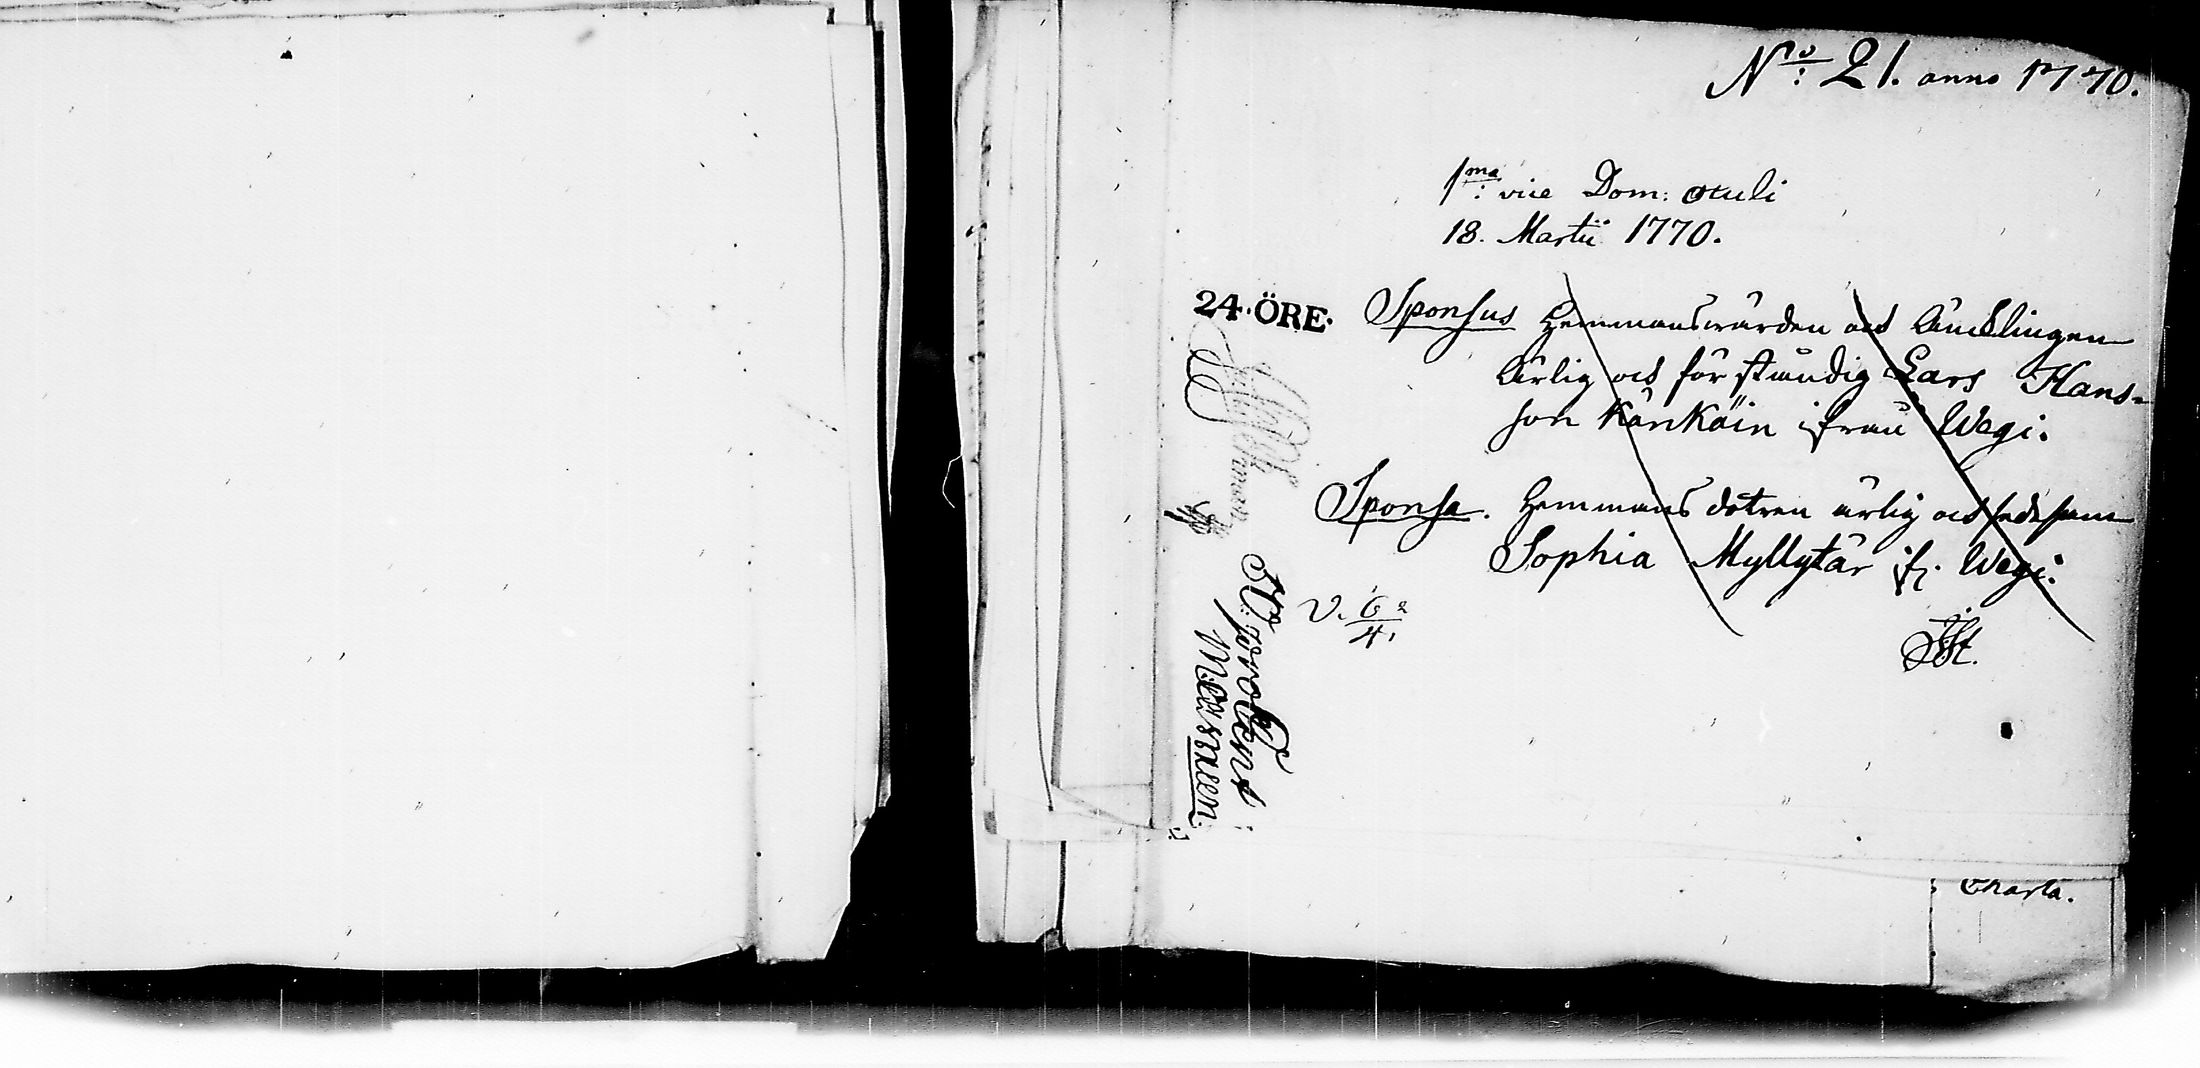 No: 21. anno 1770.
1ma: vice Dom: oculi
18. Martii 1770.
24. ÖRE.
Sponsus Hemmanswärden och Äncklingen
Ärlig och förståndig Lars Hans-
son Känkäin ifrån Wegi.
Sponsa. Hemmans dotren ärlig och sedesam
Sophia Myllytär if. Wegi.
V. 6/4
Charta.